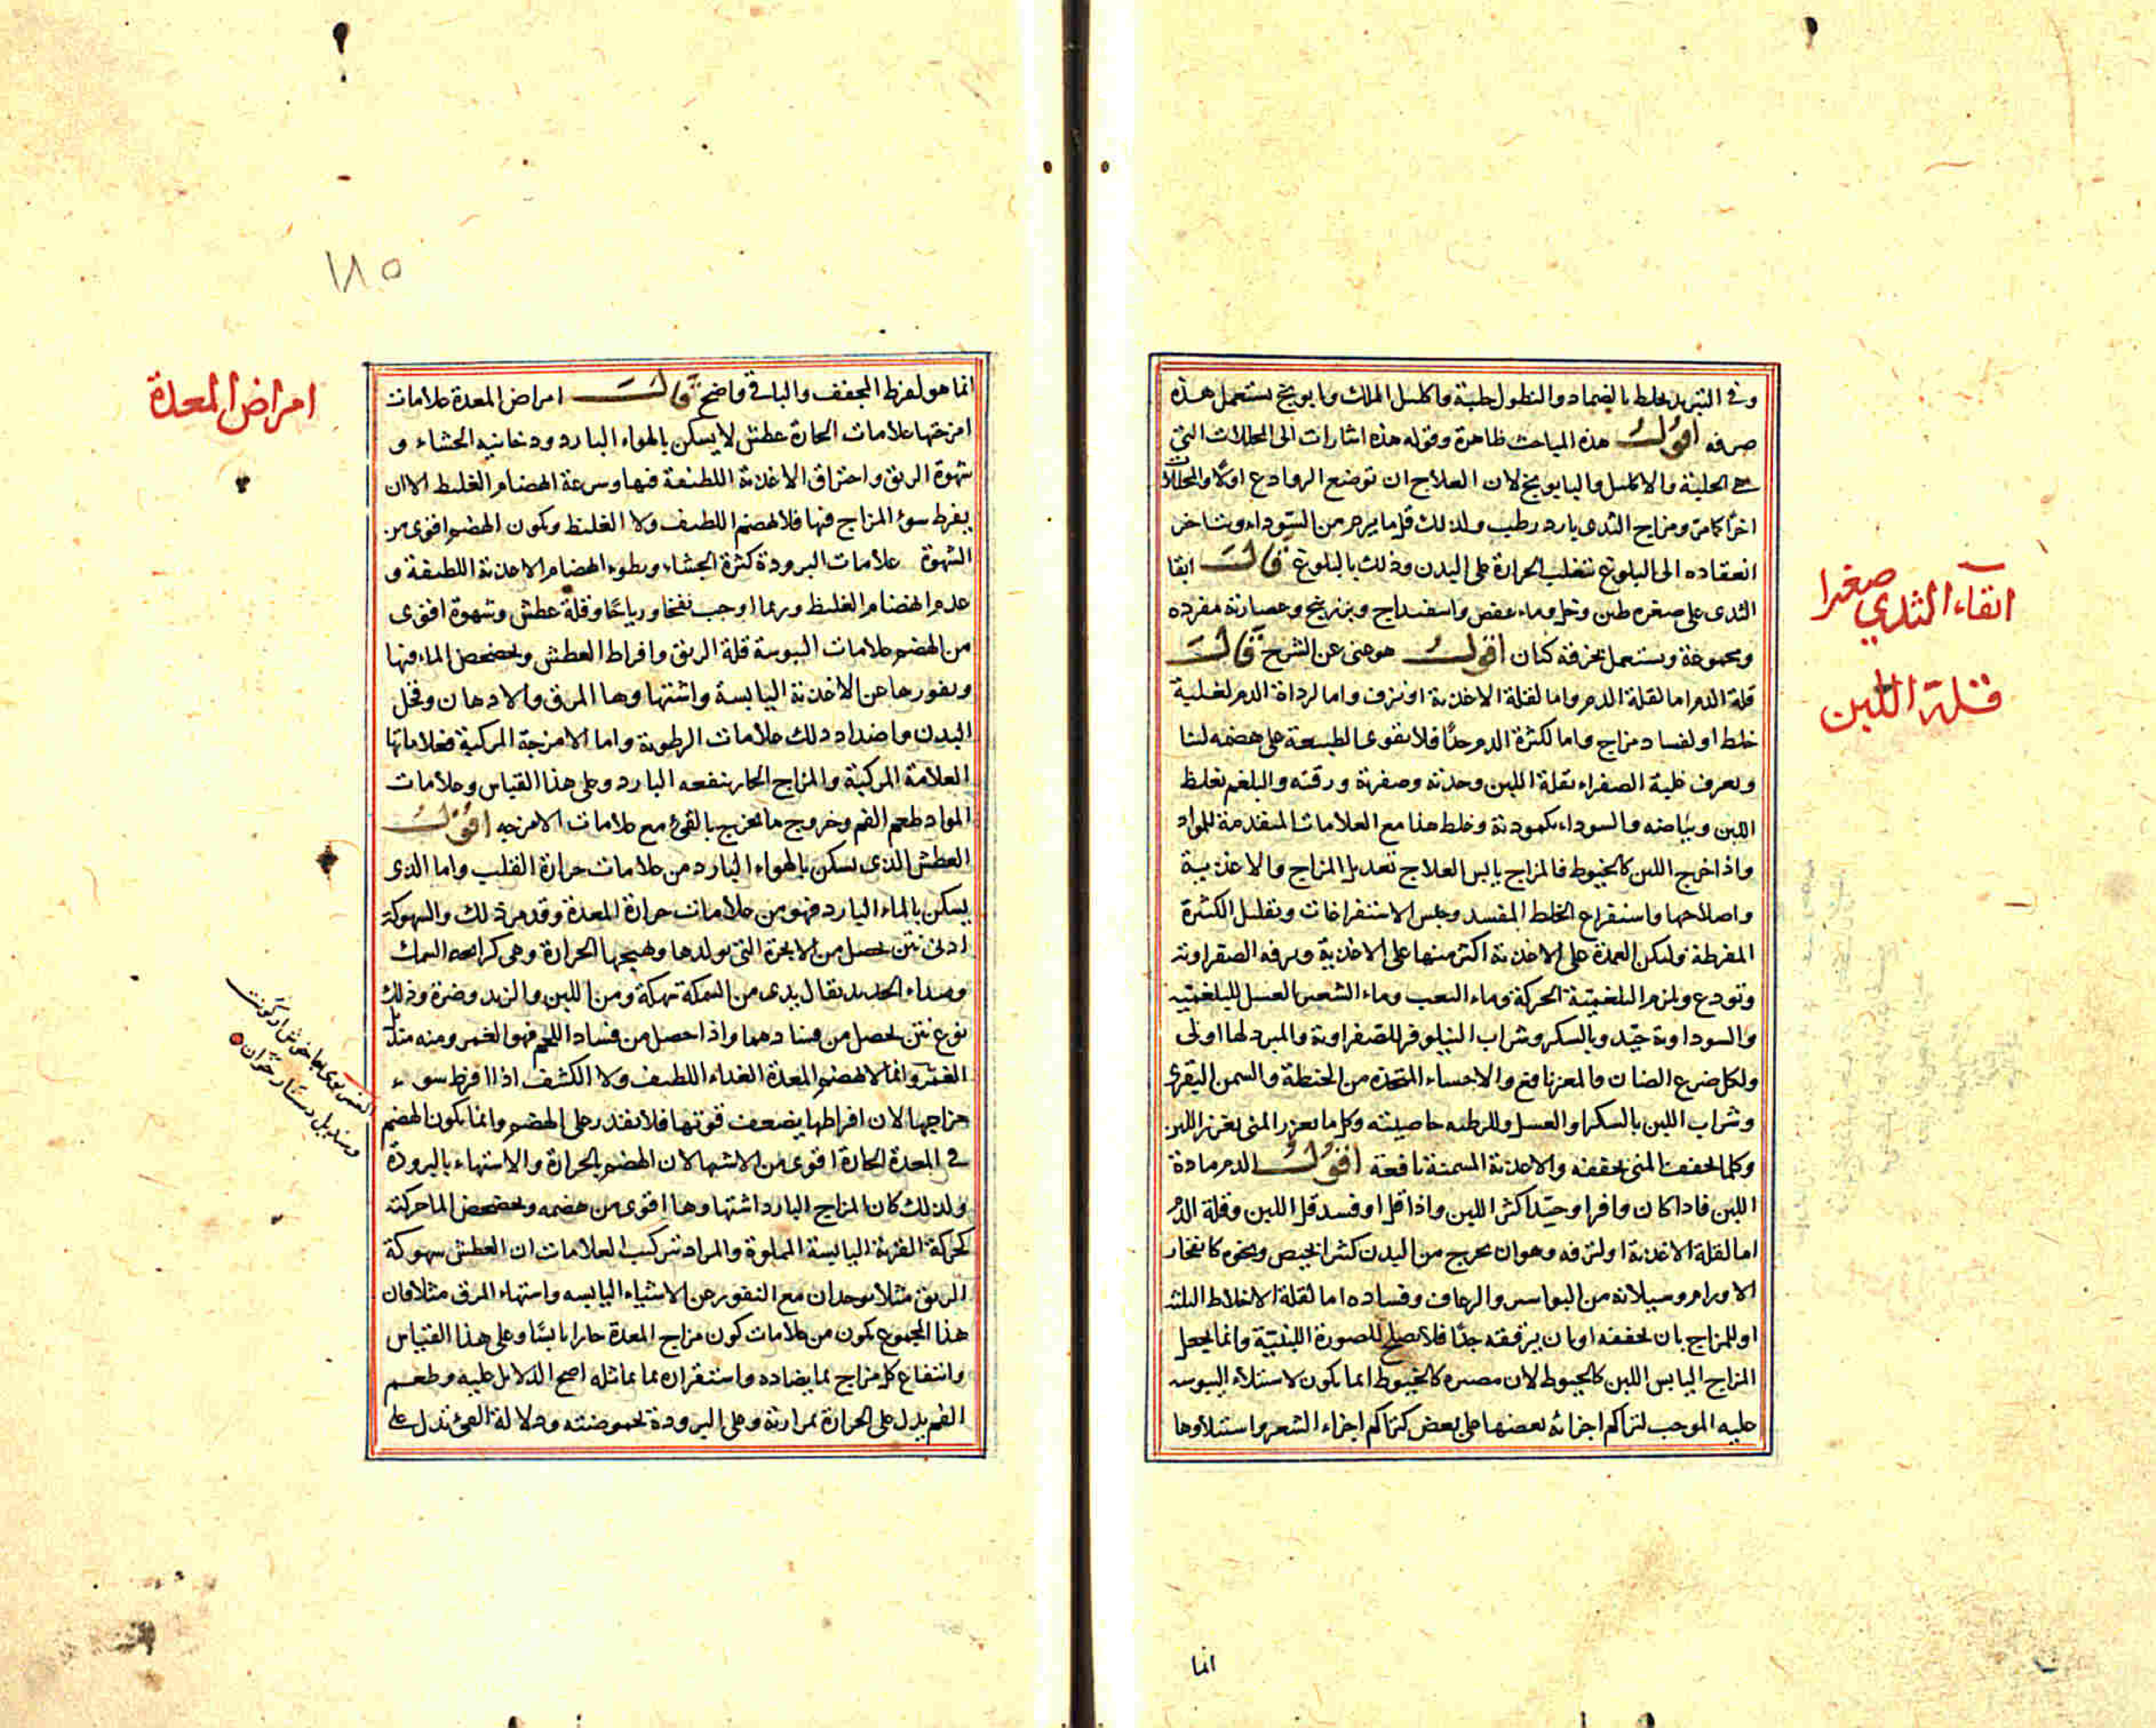 وفى التبريد يخلط بالضماد والنطول حلبة واكليل الملك وبابونج يستعمل هذه
صرفه اقول هذه المباحث ظاهرة وقوله هذه اشارات الى المحللات التى
هى الحلبة والاكليل والبابونج لان العلاج ان توضع الروادع اولا والمحللات
اخرا كما مر ومزاج الثدى بارد رطب ولذلك قل ما يرم من السوداء ويتاخر
انعقاده الى البلوغ لتغلب الحرارة على البدن وذلك بالبلوغ قال ابقا
الثدى على صغره طين وخل وماء عفص واسفيداج وبزر بنج وعصارته مفرده
ومجموعة ويستعمل بخرقة كتان اقول هو غنى عن الشرح قال
قلة الدم اما لقلة الدم واما لقلة الاغذية او نزف واما لرداة الدم لغلبة
خلط او لفساد مزاج واما لكثرة الدم جدا فلا تقوى الطبيعة على هضمه لبنا
ويعرف غلبة الصفراء بقلة اللبن وحدته وصفرته ورقته والبلغم بغلظ
اللبن وبياضه والسوداء بكمودته وغلظ هذا مع العلامات المتقدمة للمواد
واذا خرج اللبن كالخيوط فالمزاج يابس العلاج تعديل المزاج والاغذية
واصلاحها واستفراغ الخلط المفسد وحبس الاستفراغات وتقليل الكثيرة
المفرطة وليكن العمدة على الاغذية اكثر منها على الادوية وترفه الصفراوية
وتودع ويلزم البلغمية الحركة وماء الشعير وماء الشعير العسل للبلغمية
والسوداوية جيد وبالسكر وشراب النيلوفر للصفراوية والمبرد لها اولى
ولكل ضرع الضان والمعز نافع والاحساء المتخذة من الحنطة والسمن البقرى
وشراب اللبن بالسكر او العسل وللرطبة خاصية وكل ما يغزر المنى يغزر اللبن
وكلما يجفف المنى يجففه والاغذية المسمنة نافعة اقول الدم مادة
اللبن فاذا كان وافرا وجيدا كثر اللبن واذا قل او فسد قل اللبن وقلة الدم
اما لقلة الاغذية او لنزفه وهو ان يخرج من البدن كثيرا بحيض ونحوه كانفجار
الاورام وسيلانه من البواسير والرعاف وفساده اما لغلبة الاخلاط الثلثة
او للمزاج بان يجففه او بان يرققه جدا فلا يصلح للصورة اللبنية وانما يجعل
المزاج اليابس اللبن كالخيوط لان مصيره كالخيوط انما يكون لاستيلاء اليبوسة
عليه الموجب لتراكم اجزائه بعضها على بعض كتراكم اجزاء الشعر واستيلاوها
ابقاء الثدي صغيرا
قلة اللبن
انما
١٨٥
انما هو لفرط المجفف والباقى واضح قال امراض المعدة علامات
امزجتها علامات الحارة عطش لا يسكن بالهواء البارد ودخانية الجشاء و
سهوكة الريق واحتراق الاغذية اللطيفة فيها وسرعة انهضام الغليظ الا ان
يفرط سوء المزاج فيها فلا تهضم اللطيف ولا الغليظ ويكون الهضم اقوى من
الشهوة علامات البرودة كثرة الجشاء وبطوء انهضام الاغذية اللطيفة و
عدم انهضام الغليظ وربما اوجب نفخا ورياحا وقلة عطش وشهوة اقوى
من الهضم علامات اليبوسة قلة الريق وافراط العطش وتخضخض الماء فيها
ونفورها عن الاغذية اليابسة واشتهاوها المرق والادهان ونحل
البدن واضداد ذلك علامات الرطوبة واما الامزجة المركبة فعلاماتها
العلامة المركبة والمزاج الحار ينفعه البارد وعلى هذا القياس وعلامات
المواد طعم الفم وخروج ما يخرج بالقىء مع علامات الامزجه اقول
العطش الذى يسكن بالهواء البارد من علامات حرارة القلب واما الذى
يسكن بالماء البارد فهو من علامات حرارة المعدة وقد مر ذلك والسهوكة
ادنى نتن يحصل من الابخرة التى تولدها وتهيجها الحرارة وهى كرايحة السمك
وصداء الحديد يقال يدى من السمكة سهكة ومن اللبن والزبد وضرة وذلك
نوع نتن يحصل من فسادهما واذا حصل من فساد اللحم فهو الغمر ومنه منديل
الغمر وانما لا تهضم المعدة الغذاء اللطيف ولا الكثيف اذا افرط سوء
مزاجها لان افراطها يضعف قوتها فلا تقدر على الهضم وانما يكون الهضم
فى المعدة الحارة اقوى من الاشتها لان الهضم بالحرارة والاشتهاء بالبرودة
ولذلك كان المزاج البارد اشتهاوها اقوى من هضمه وتخضخض الماء حركته
كحركة القربة اليابسة المملوة والمراد بتركيب العلامات ان العطش وسهوكة
الريق مثلا يوجدان مع النفور عن الاشياء اليابسه واشتهاء المرق مثلا فان
هذا المجموع يكون من علامات كون مزاج المعدة حارا يابسا وعلى هذا القياس
وانتفاع كل مزاج بما يضاده واستضراره بما يماثله اصح الدلائل عليه وطعم
الفم يدل على الحرارة بمرارته وعلى البرودة بحموضته ودلالة القىء تدل على
امراض المعدة